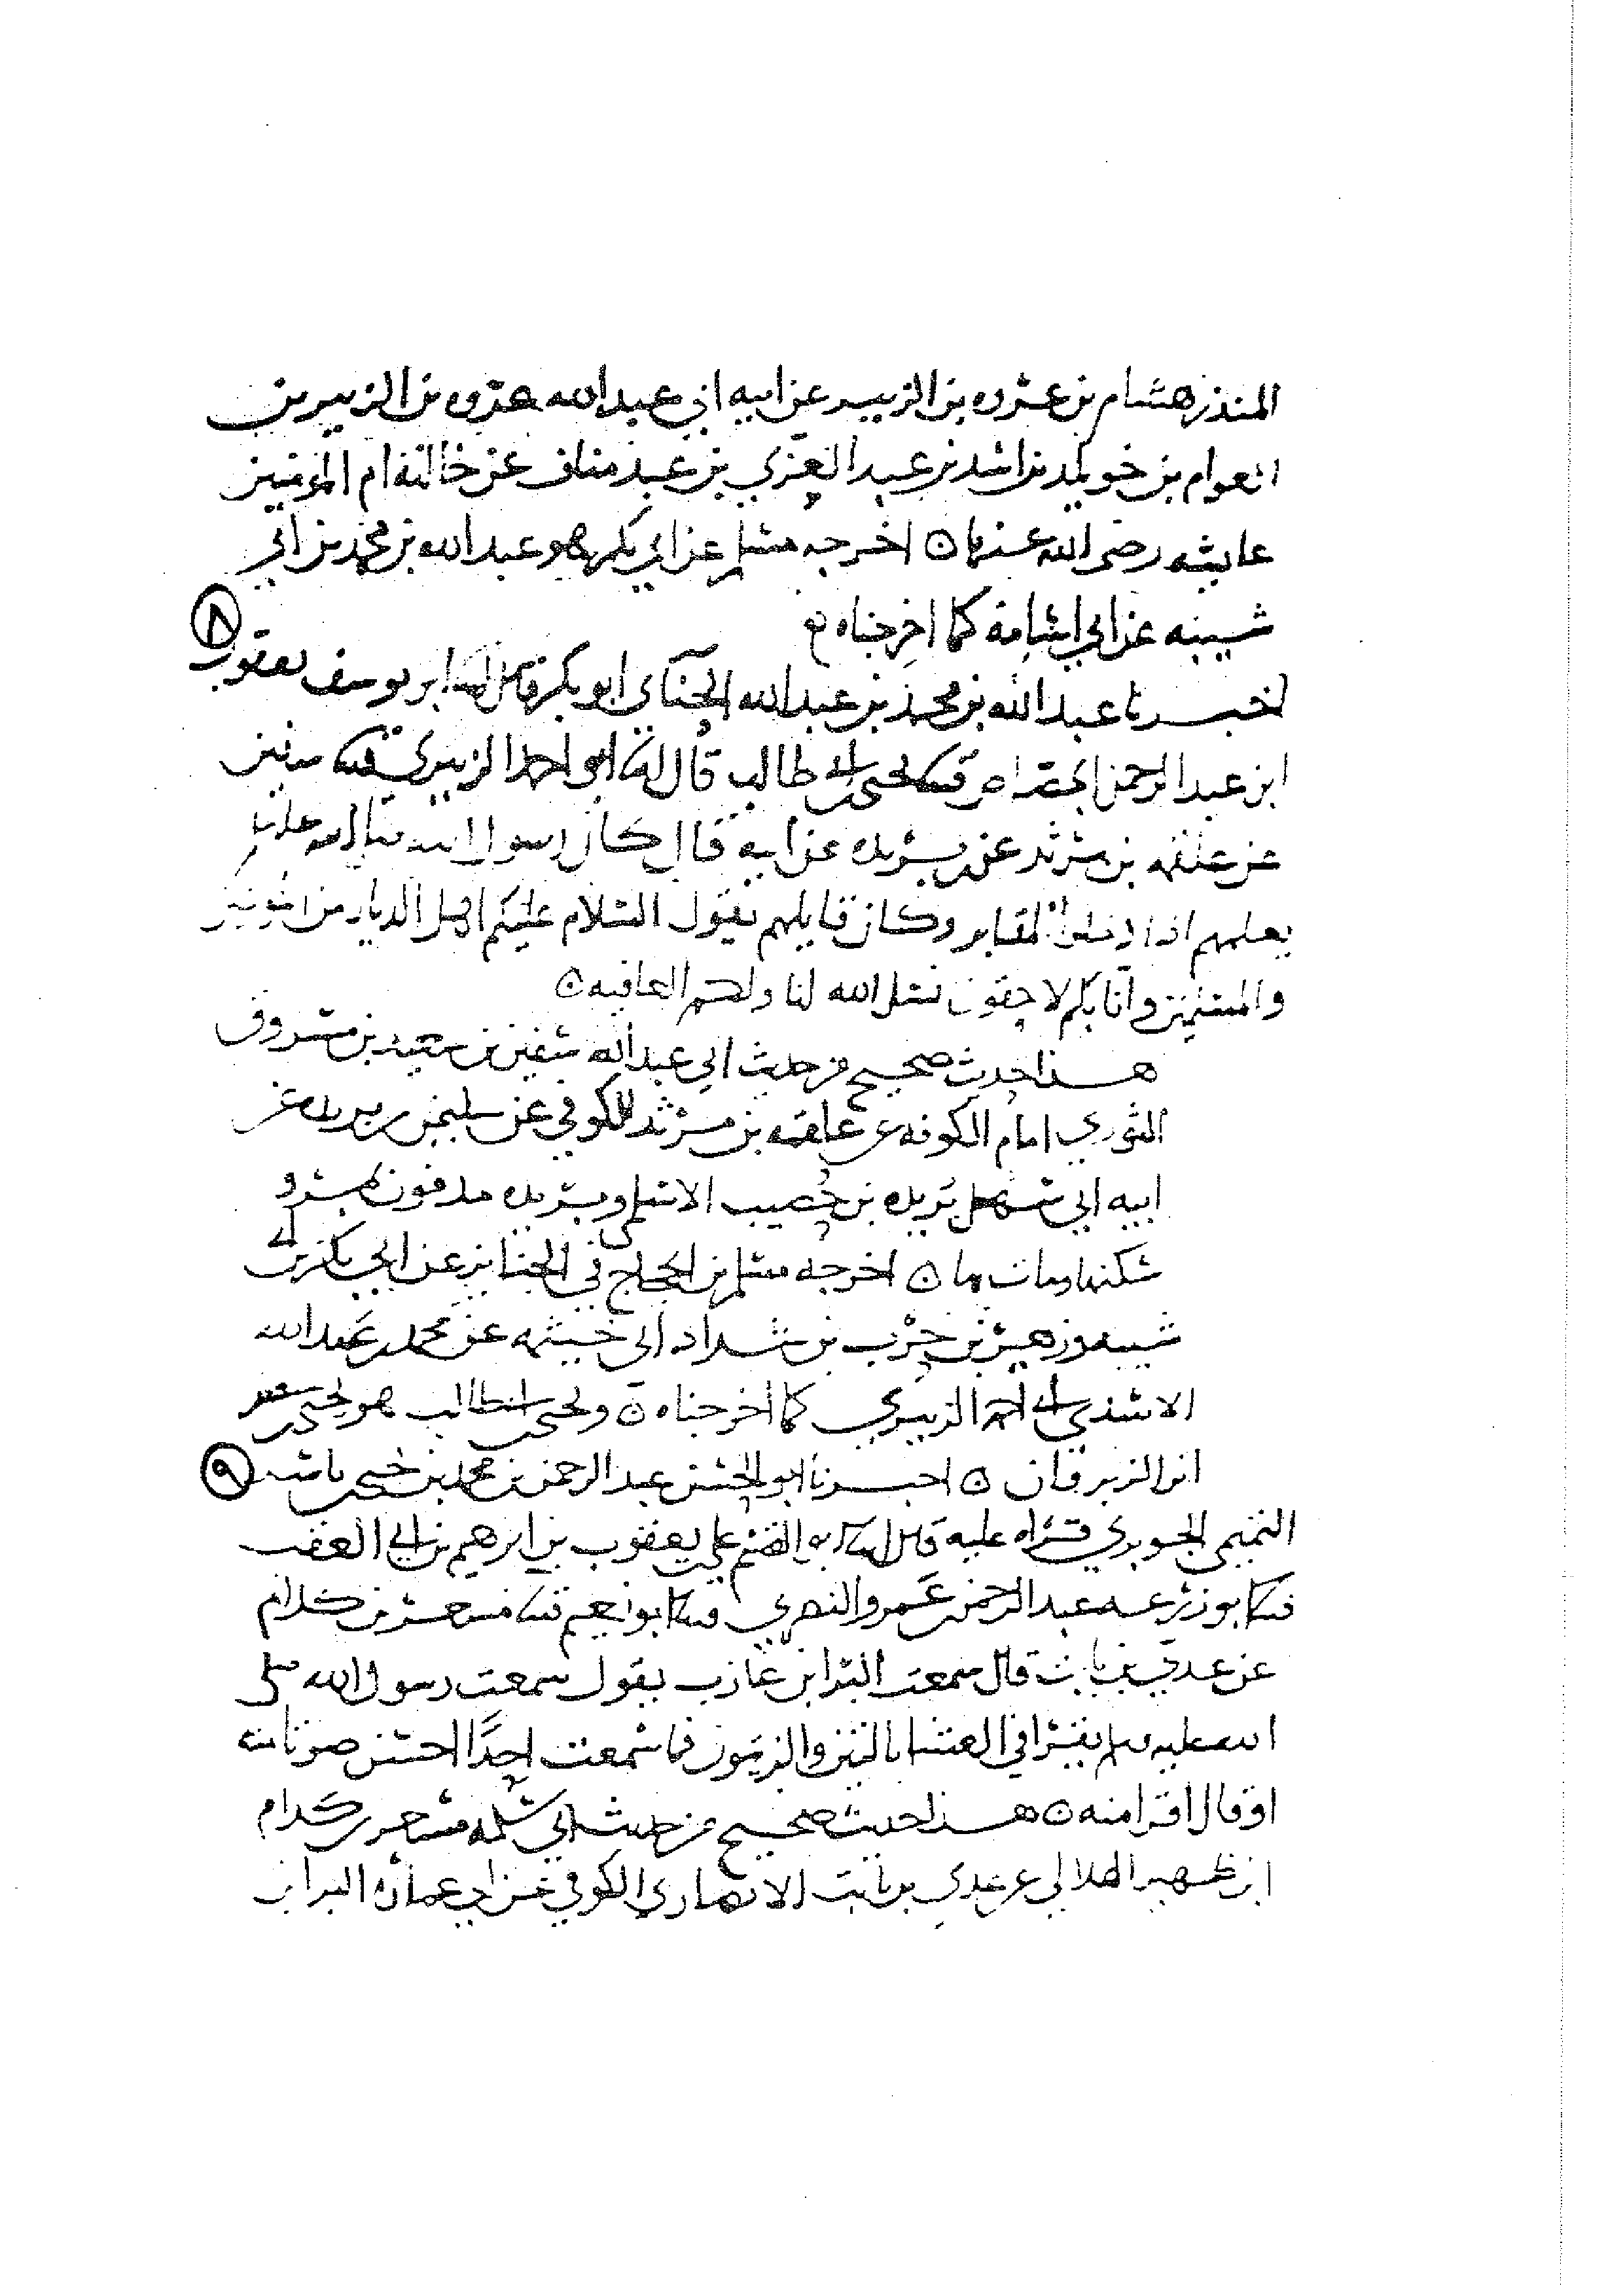 المنذر هشام بن عروه بن الزبير عن ابيه ابي عبد الله عروه بن الزبير بن
العوام بن خويلد بن اسد بن عبد العزي بن عبد مناف عن خالته ام المومنين
عايشه رضى الله عنها ن اخرجه مسلم عن ابي بكر وهو عبد الله بن محمد بن ابي
شيبه عن ابي اسامة كما اخرجناه
٨
اخبرنا عبد الله بن محمد بن عبد الله الحنآي ابو بكر قال ابو يوسف يعقوب
ابن عبد الرحمن الجصاص يحيى بن ابي طالب قال ابو احمد الزبيري سفين
عن علقمه بن مرثد عن بن بريده عن ابيه قال كان رسول الله صلى الله عليه
يعلمهم اذا دخلوا المقابر وكان قايلهم يقول السلام عليكم اهل الديار من المومنين
والمسلمين وانا بكم لاحقون نسل الله لنا ولكم العافيه ن
هذا حديث صحيح من حديث ابي عبد الله سفين بن سعيد بن مسروق
الثوري امام الكوفه عن علقمه بن مرثد الكوفي عن سليمن بن بريده عن
ابيه ابي سهل بريده بن حصيب الاسلمى وبريده مدفون بمرو
سكنها ومات بها ن اخرجه مسلم بن الحجاج في الجنايز عن ابي بكر بن ابي
شيبه وزهير بن حرب بن شداد ابى خيثمه عن محمد بن عبد الله
الاسدي ابي احمد الزبيري كما اخرجناه ن ويحيى بن ابي طالب هو يحيى بن جعفر
ابن الزبرقان ن اخبرنا ابو الحسن عبد الرحمن بن محمد بن يحيى بن ياسر
٩
التميمى الجوبري قراه عليه قال ابو القسم علي بن يعقوب بن ابرهيم بن ابي العقب
ابو زرعه عبد الرحمن بن عمرو النصري ابو نعيم مسعر بن كدام
عن عدي بن ثابت قال سمعت البرا بن عازب يقول سمعت رسول الله صلى
الله عليه وسلم يقرا في العشا بالتين والزيتون فما سمعت احدا احسن صوتا منه
او قال اقرا منه ن هذا حديث صحيح من حديث ابي سلمه مسعر بن كدام
ابن ظهير الهلالي عن عدي بن ثابت الانصاري الكوفي عن ابي عماره البرا بن